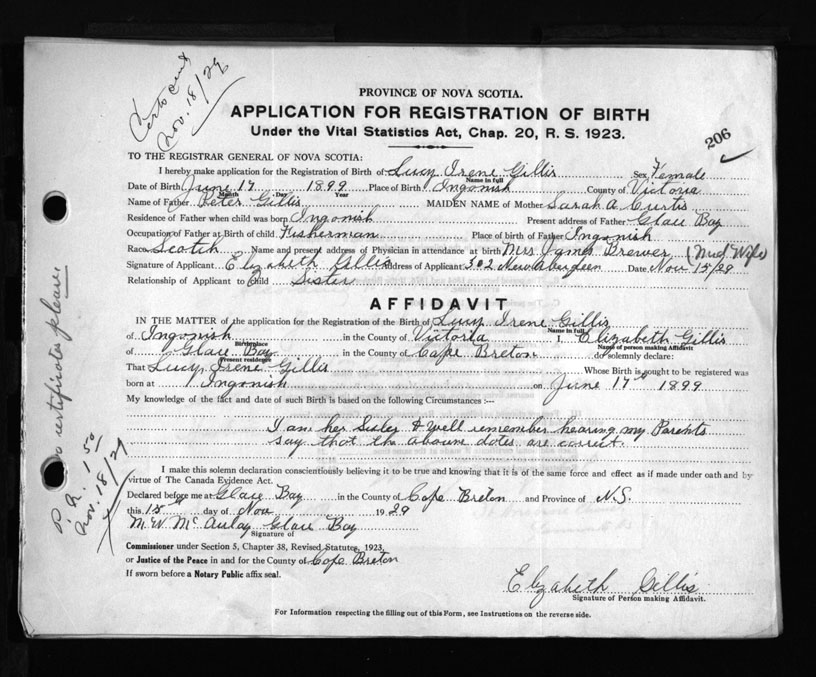 Certs sent
Nov. 18/29
PROVINCE OF NOVA SCOTIA.
APPLICATION FOR REGISTRATION OF BIRTH
Under the Vital Statistics Act, Chap. 20, R. S. 1923.
206
TO THE REGISTRAR GENERAL OF NOVA SCOTIA:
I hereby make application for the Registration of Birth of Lucy Irene Gillis Sex Female
Name in full
Date of Birth June 17 1899 Place of Birth Ingonish County of Victoria
Month Day Year
Name of Father Peter Gillis MAIDEN NAME of Mother Sarah A Curtis
Residence of Father when child was born Ingonish Present address of Father Glace Bay
Occupation of Father at Birth of child Fisherman Place of birth of Father Ingonish
Race Scotch Name and present address of Physician in attendance at birth Mrs Agnes Brewer (Mid Wife)
Signature of Applicant Elizabeth Gillis Address of Applicant 302 New Aberdeen Date Nov 15/29
Relationship of Applicant to Child Sister
AFFIDAVIT
IN THE MATTER of the application for the Registration of the Birth of Lucy Irene Gillis
Name in full
of Ingonish in the County of Victoria I, Elizabeth Gillis
Birthplace Name of person making Affidavit
of Glace Bay in the County of Cape Breton do solemnly declare:
Present residence
That Lucy Irene Gillis Whose Birth is sought to be registered was
born at Ingonish on June 17th 1899
My knowledge of the fact and date of such Birth is based on the following Circumstances:—
I am her Sister & well remember hearing my Parents
say that the above dates are correct.
I make this solemn declaration conscientiously believing it to be true and knowing that it is of the same force and effect as if made under oath and by
virtue of The Canada Evidence Act.
Declared before me at Glace Bay in the County of Cape Breton and Province of N.S.
this 15th day of Nov 1929
M. W. McAulay Glace Bay
Signature of
Commissioner under Section 5, Chapter 38, Revised Statutes, 1923,
or Justice of the Peace in and for the County of Cape Breton
If sworn before a Notary Public affix seal.
Elizabeth Gillis
Signature of Person making Affidavit.
For Information respecting the filling out of this Form, see Instructions on the reverse side.
certificates please
P.R. 1.50
Nov. 18/29